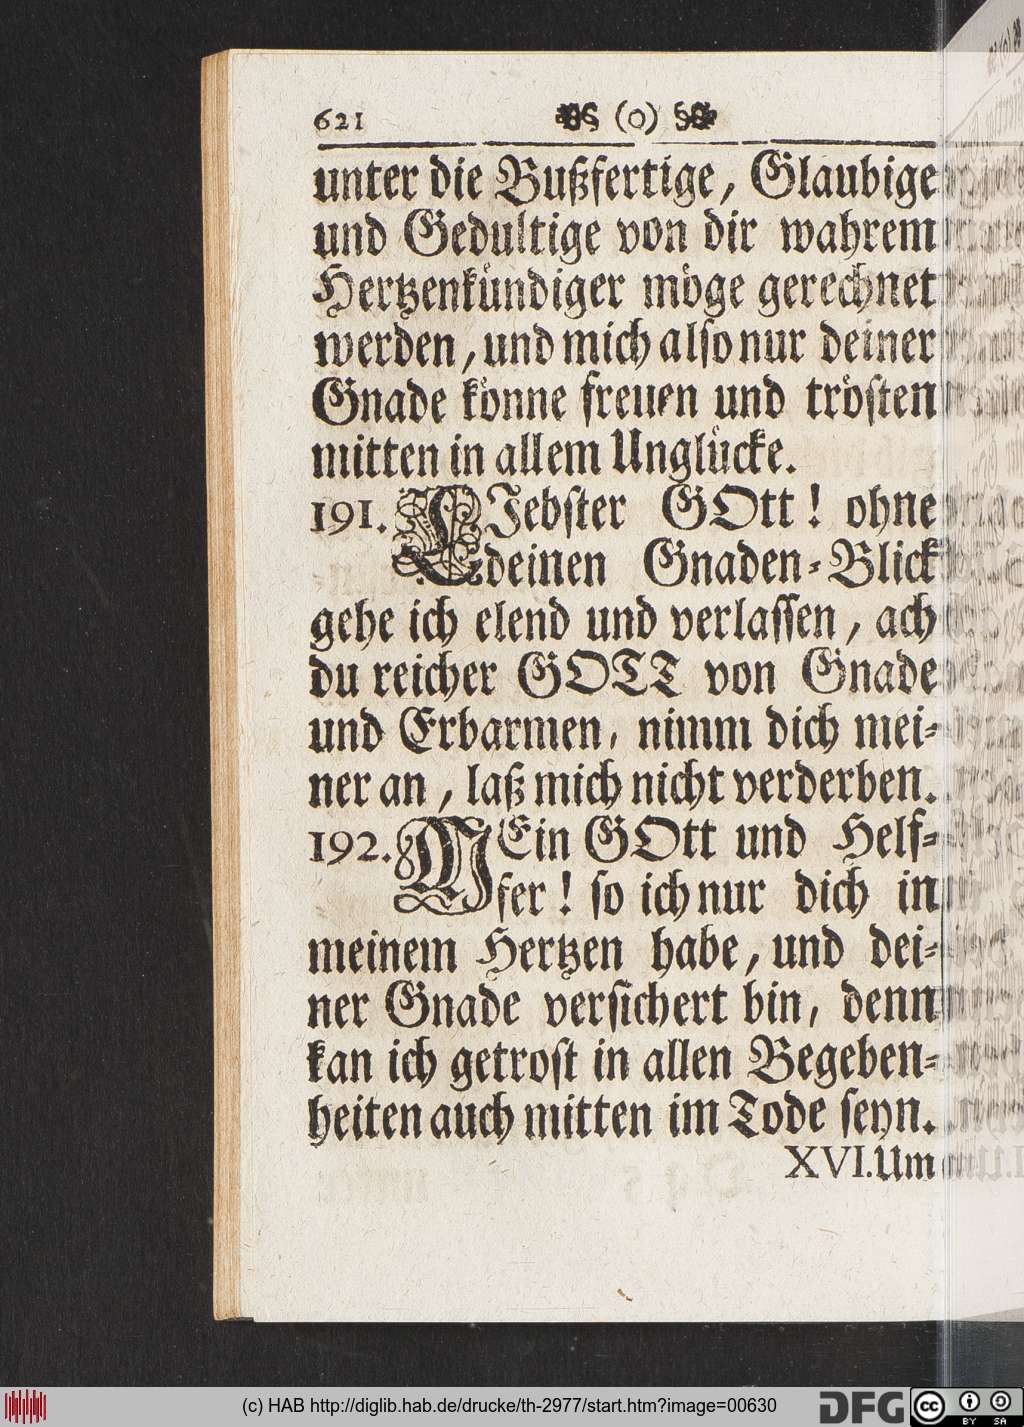 621 (o)
unter die Bußfertige, Glaubige
und Gedultige von dir wahrem
Hertzenkündiger möge gerechnet
werden, und mich also nur deiner
Gnade könne freuen und trösten
mitten in allem Unglücke.
191. LIebster GOtt! ohne
deinen Gnaden-Blick
gehe ich elend und verlassen, ach
du reicher GOTT von Gnade
und Erbarmen, nimm dich mei-
ner an, laß mich nicht verderben.
192. MEin GOtt und Helf-
fer! so ich nur dich in
meinem Hertzen habe, und dei-
ner Gnade versichert bin, denn
kan ich getrost in allen Begeben-
heiten auch mitten im Tode seyn.
XVI. Um
(c) HAB http://diglib.hab.de/drucke/th-2977/start.htm?image=00630
DFG
cc BY SA